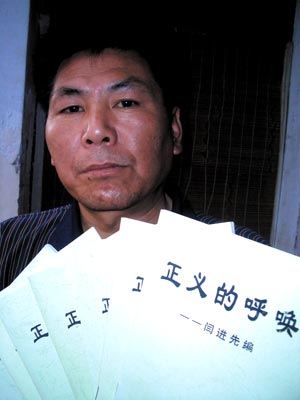 正
正
正
卫
正义的呼唤
——闫进先编